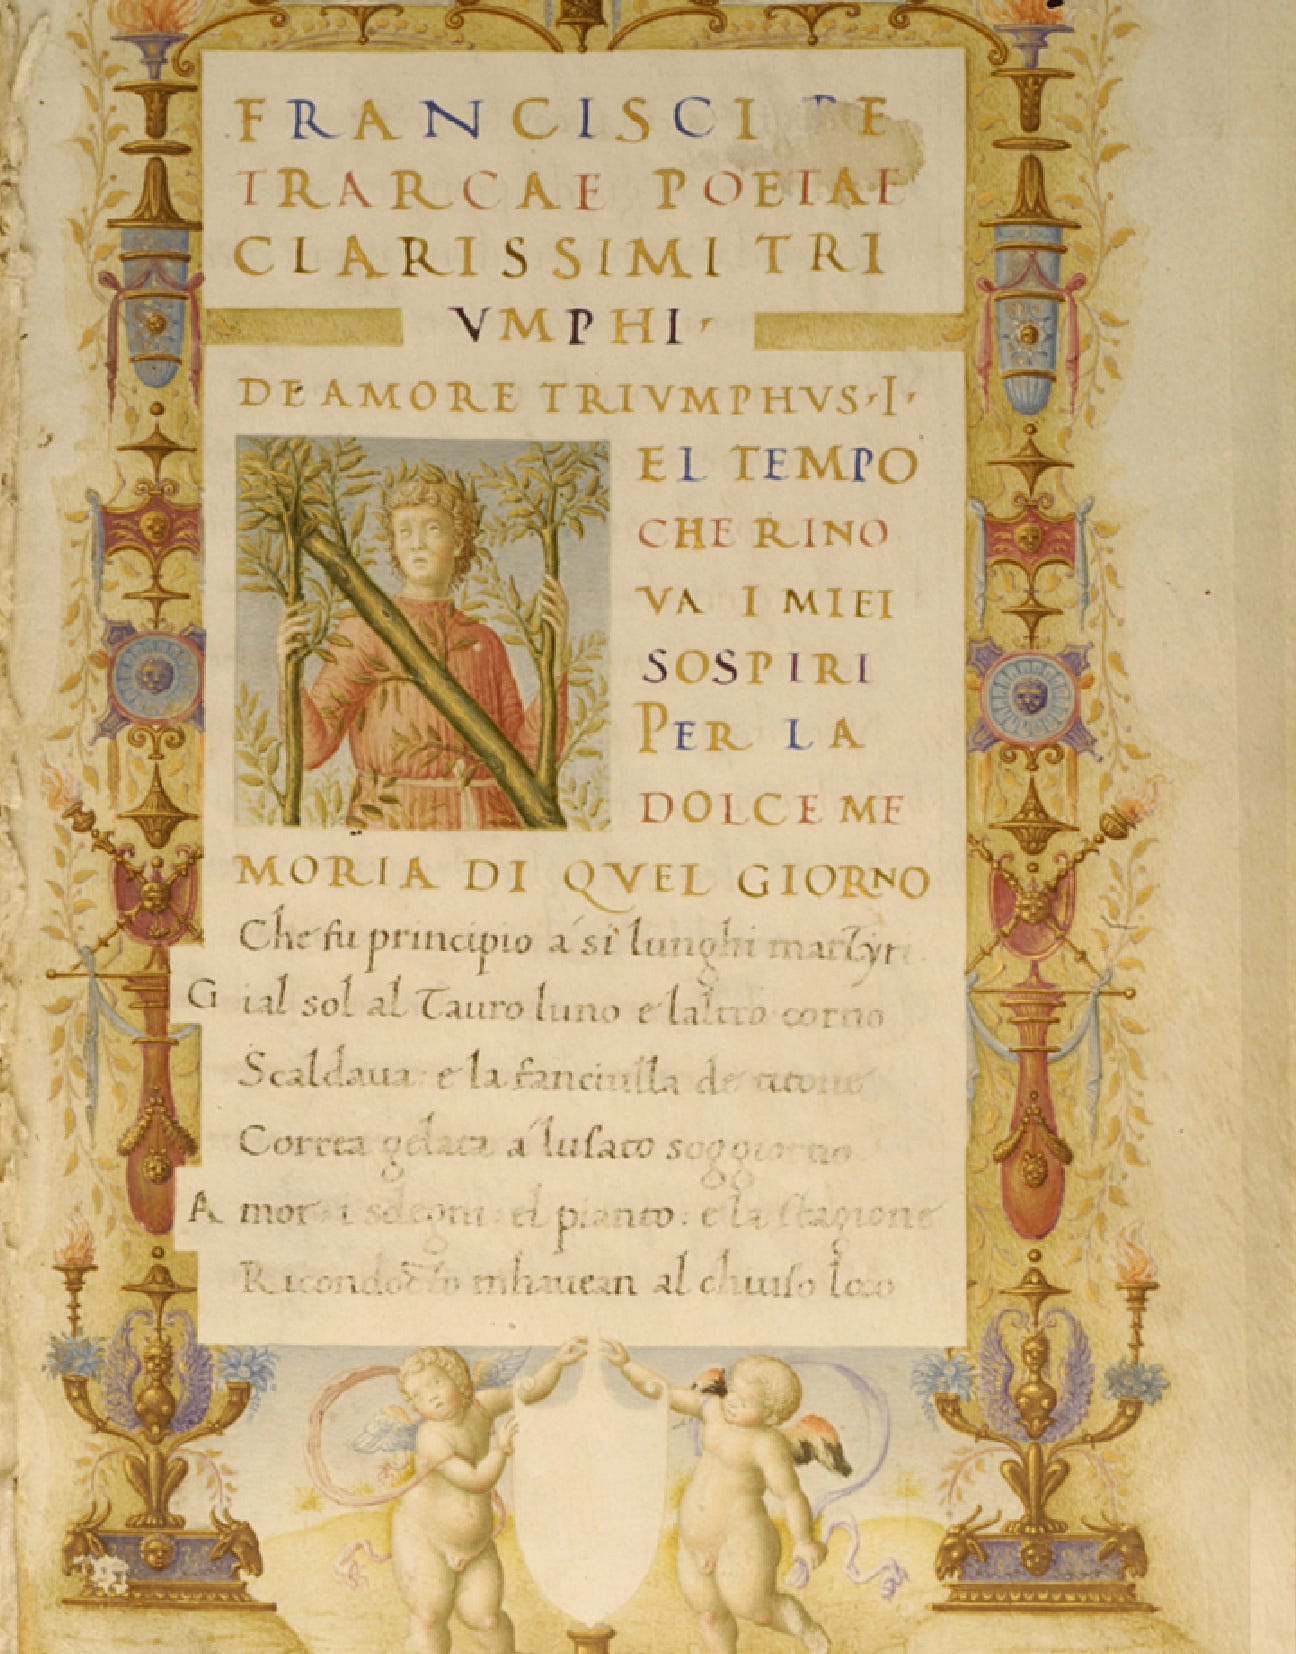 FRANCISCI PE
TRARCAE POETAE
CLARISSIMI TRI
VMPHI·
DE AMORE TRIVMPHVS·I·
N
EL TEMPO
CHE RINO
VA I MIEI
SOSPIRI
PER LA
DOLCE ME
MORIA DI QVEL GIORNO
Che fu principio a si lunghi martyri.
Gial sol al Tauro luno e laltro corno
Scaldaua: e la fanciulla de titone
Correa gelata a lusato soggiorno
Amor i sdegni: el pianto: e la stagione
Ricondocto mhauean al chiuso loco